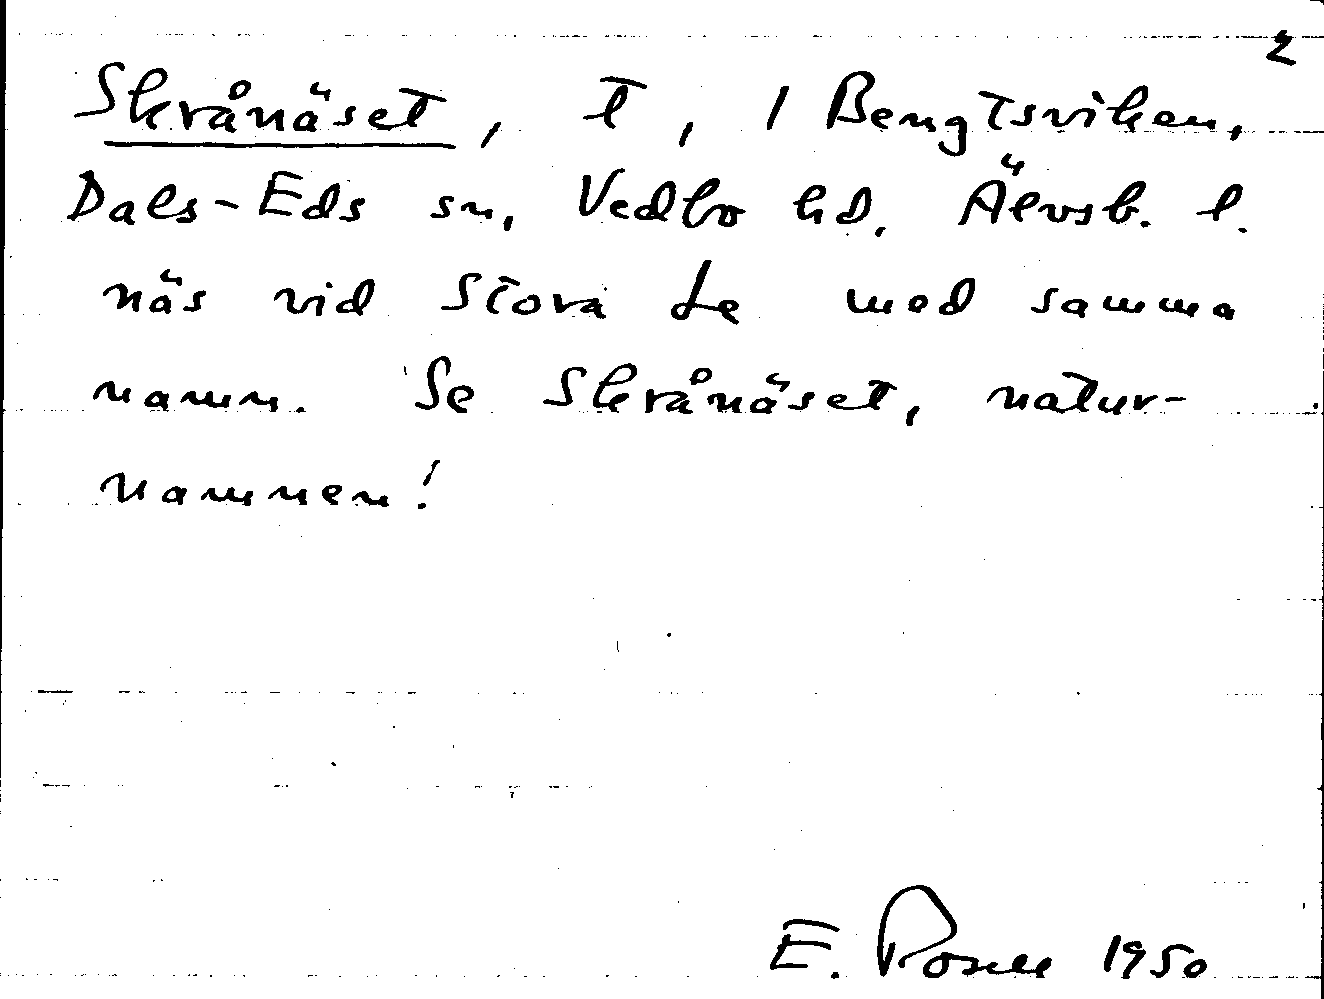 2
Skrånäset, t, / Bengtsviken,
Dals-Eds sn, Vedbo hd. Älvsb. l.
näs vid Stora Le med samma
namn. Se Skrånäset, natur-
namnen!
E. Rosell 1950